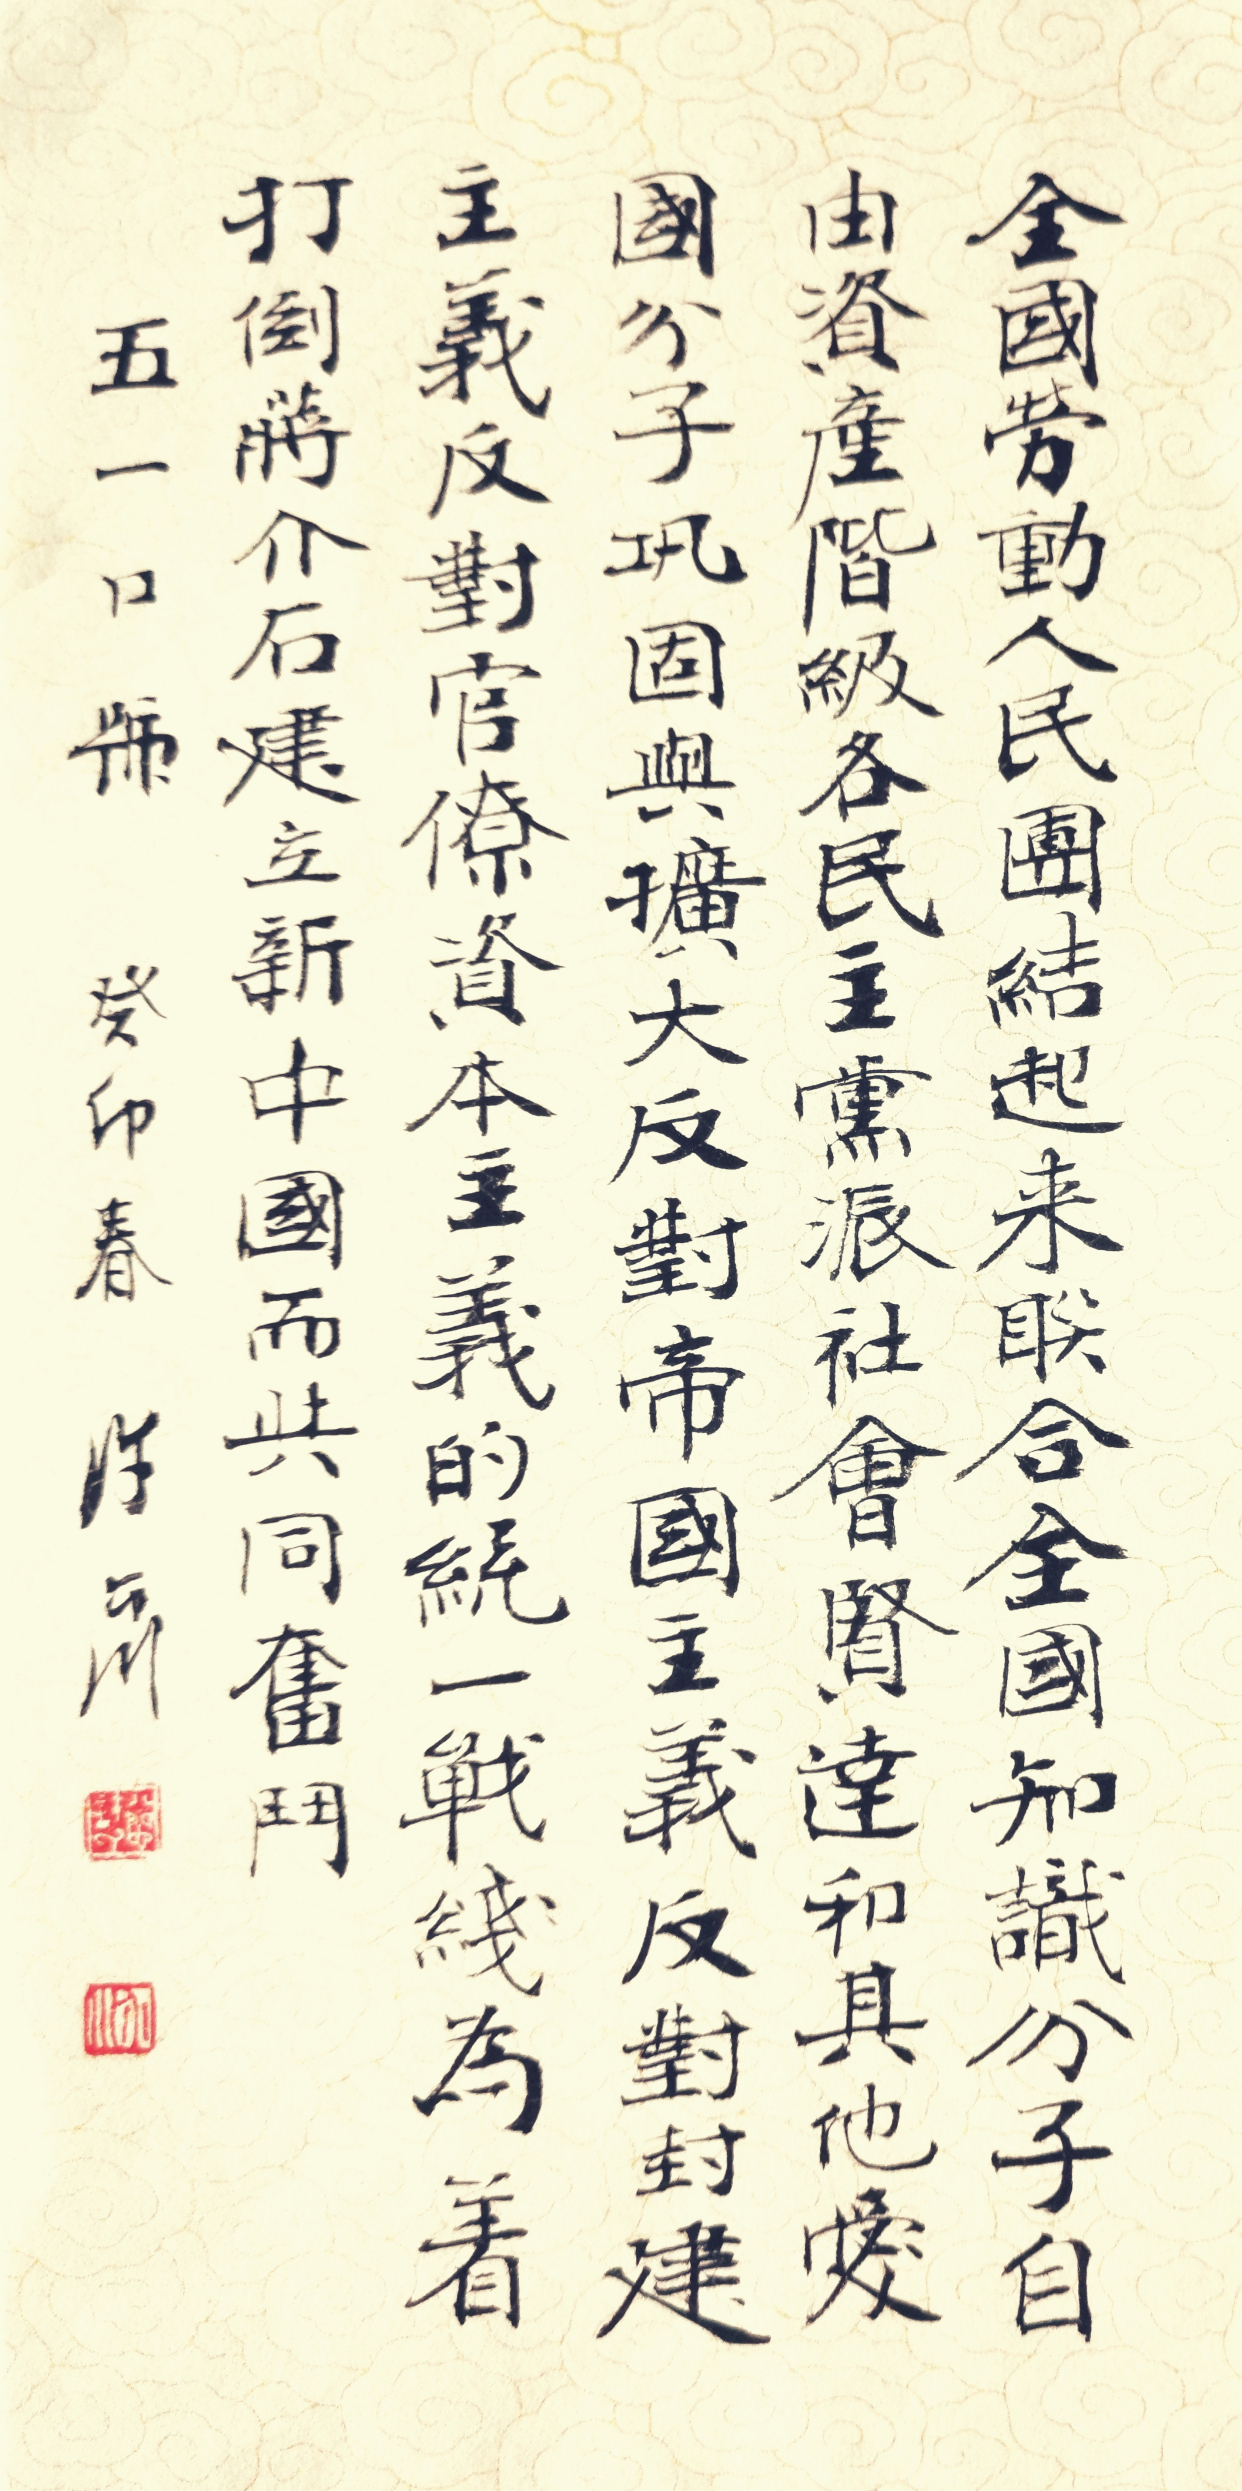 全國劳動人民團結起来联合全國知識分子自
由資產階級各民主黨派社會賢達和其他愛
國分子巩固與擴大反對帝國主義反對封建
主義反對官僚資本主義的統一戰綫為着
打倒蔣介石建立新中國而共同奮鬥
五一口號 癸卯春